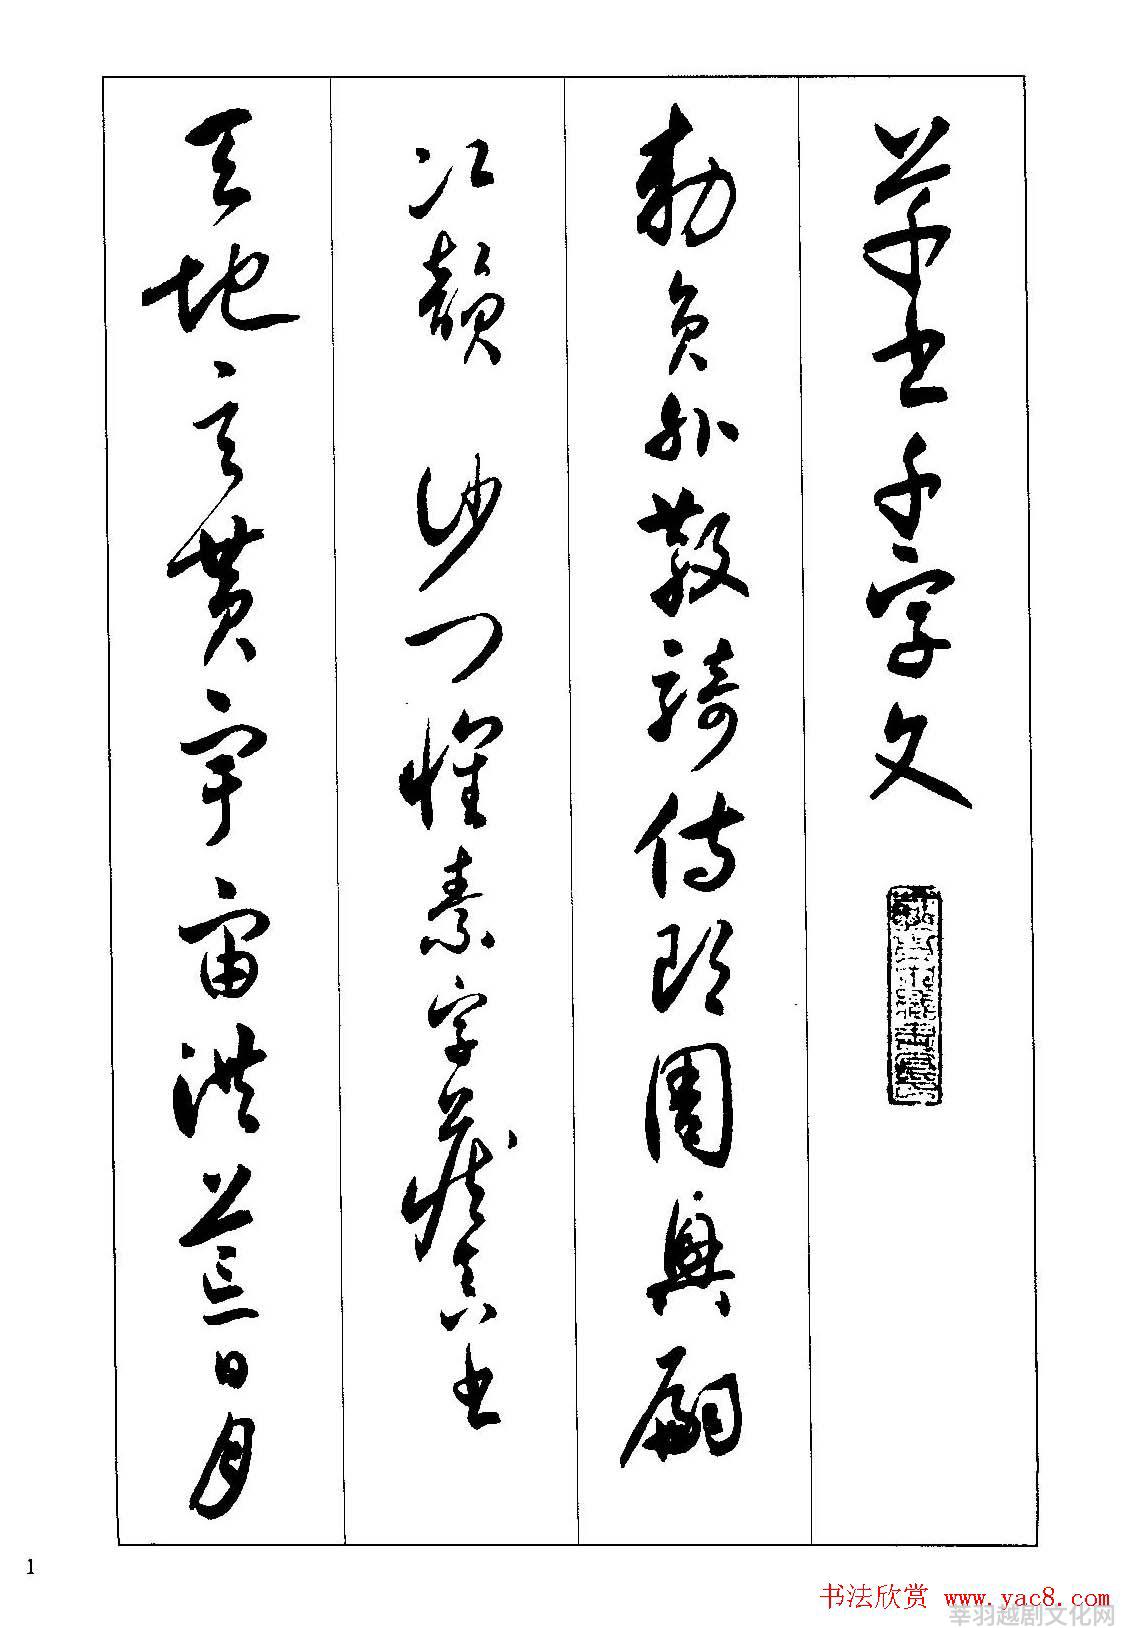 草書千字文
勅員外散騎侍郎周興嗣
次韻 沙門懷素字藏真書
天地玄黃宇宙洪荒日月
1
书法欣赏 www.yac8.com
莘羽越剧文化网